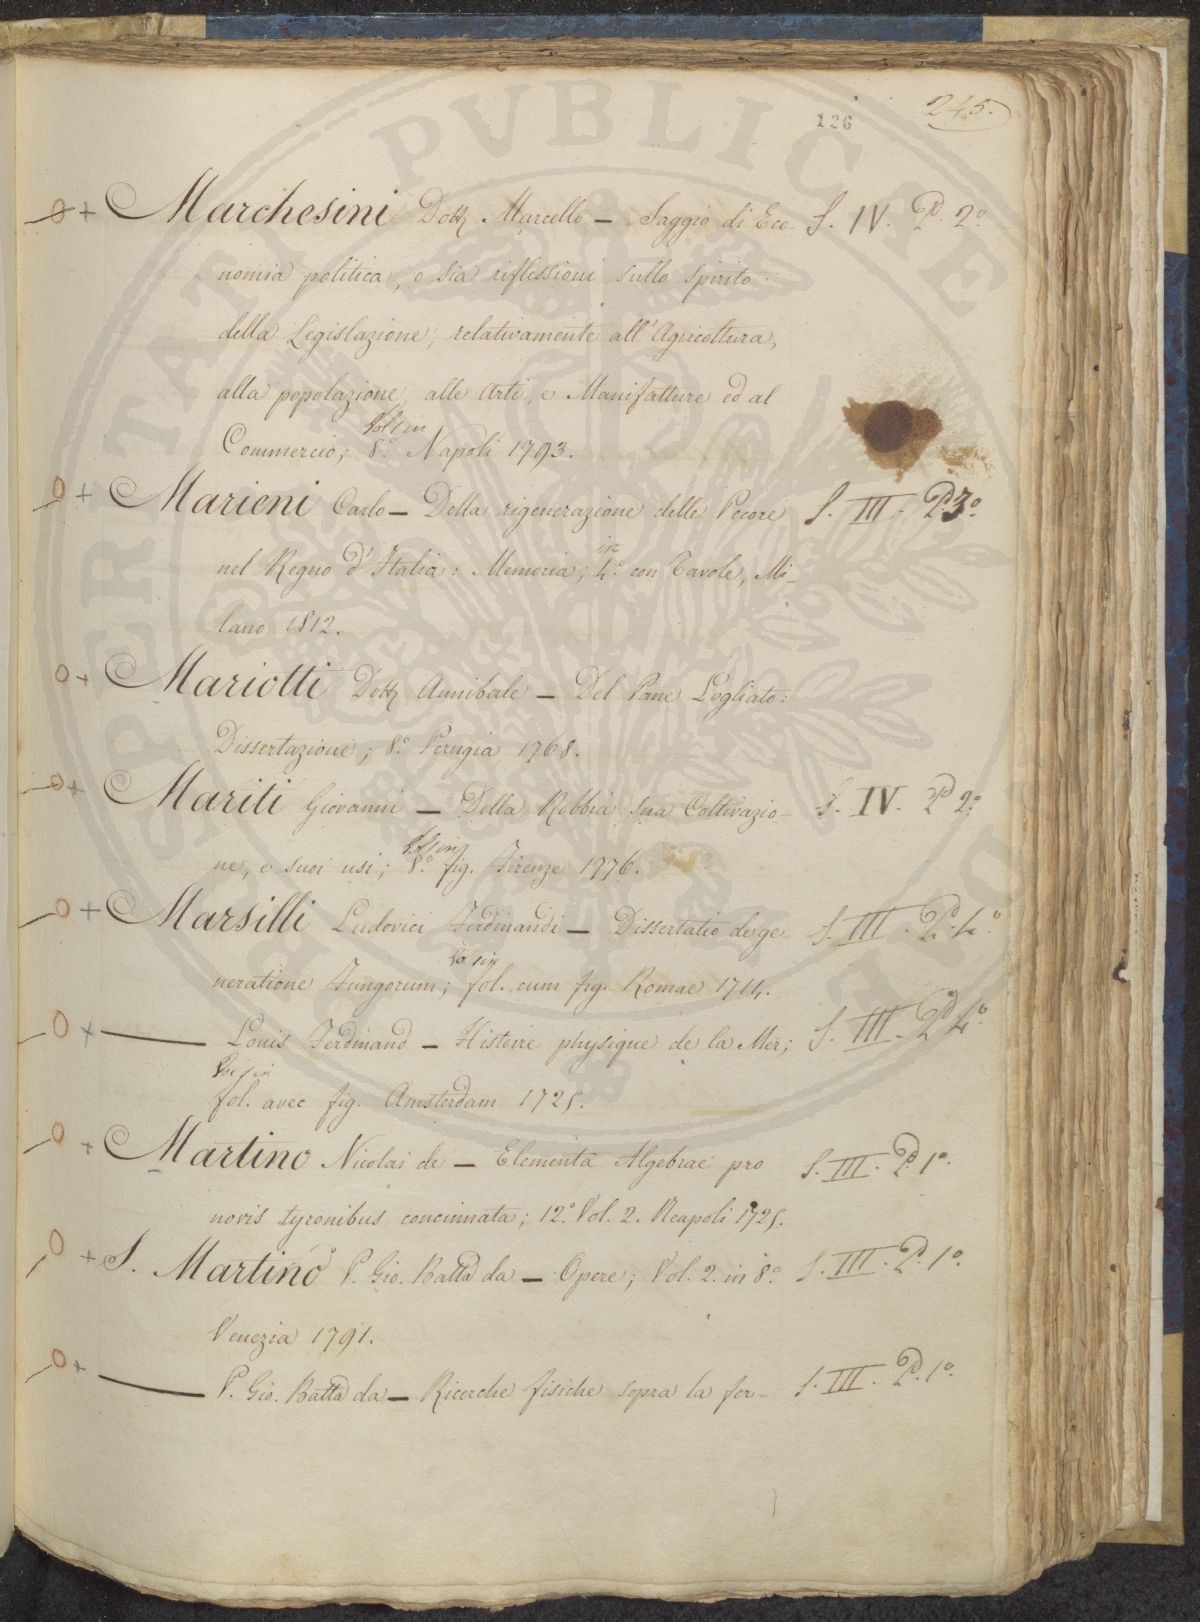 126
245.
Marchesini Dott Marcello — Saggio di Eco- S. IV. Pd. 2º
nomia politica, o sia riflessioni sullo spirito
della Legislazione, relativamente all'Agricoltura,
alla popolazione, alle Arti, e Manifatture ed al
Commercio; Vol. 1 in 8.º Napoli 1793.
Marieni Carlo — Della rigenerazione delle Pecore S. III. Pd. 3º
nel Regno d'Italia: Memoria; in 4.º con Tavole, Mi-
lano 1812.
Mariotti Dott Annibale — Del Pane Logliato:
Dissertazione; 8.º Perugia 1768.
Mariti Giovanni — Della Robbia sua Coltivazio- S. IV. Pd 2º
ne, e suoi usi; Vol. 1 in 8.º fig. Firenze 1776.
Marsilli Ludovici Ferdinandi — Dissertatio de ge- S. III. Pd. 4º
neratione Fungorum; Vol. 1 in fol. cum fig. Romae 1714.
— Louis Ferdinand — Histoire physique de la Mer; S. III. Pd 4º
Vol. 1 in
fol. avec fig. Amsterdam 1725.
Martino Nicolai de — Elementa Algebrae pro S. III. Pd. 1º.
novis tyronibus concinnata; 12.º Vol. 2. Neapoli 1725.
S. Martino P. Gio. Batta da — Opere; Vol. 2. in 8.º S. III. Pd. 1º.
Venezia 1791.
— P. Gio. Batta da — Ricerche fisiche sopra la fer- S. III. Pd. 1º.